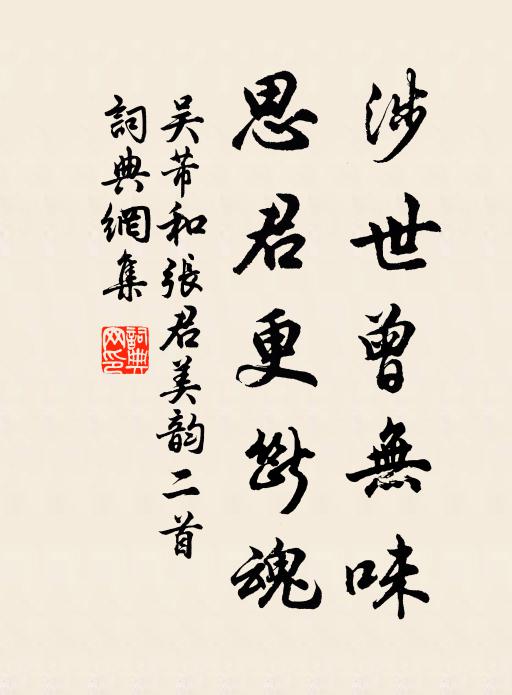 涉世曾無味
思君更斷魂
吴芾和張君美韵二首
詞典網集
詞典網印